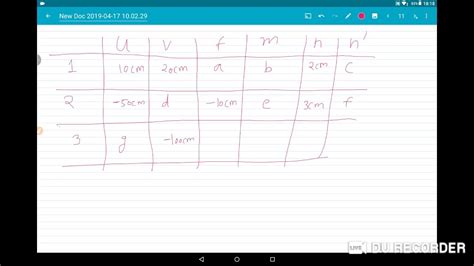 New Doc 2019-04-17 10.02.29
11
18:18
u v f m h h'
1 10cm 20cm a b 2cm c
2 -50cm d -10cm e 3cm f
3 g -100cm
LIVE DU RECORDER